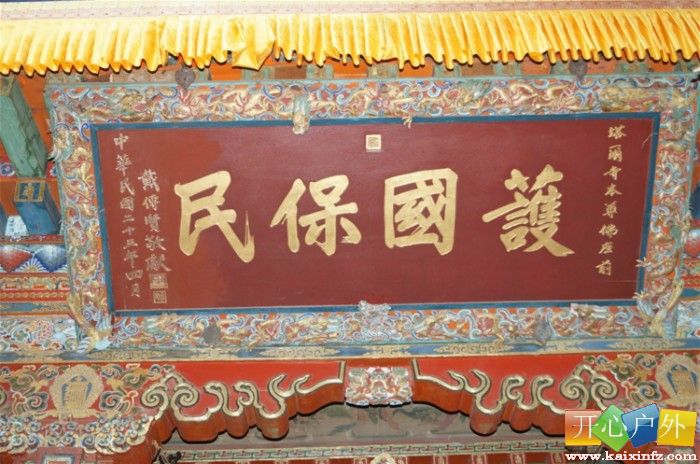 塔爾寺本尊佛座前
護國保民
戴傳賢敬獻
中華民國二十三年四月
开心户外
www.kaixinfz.com